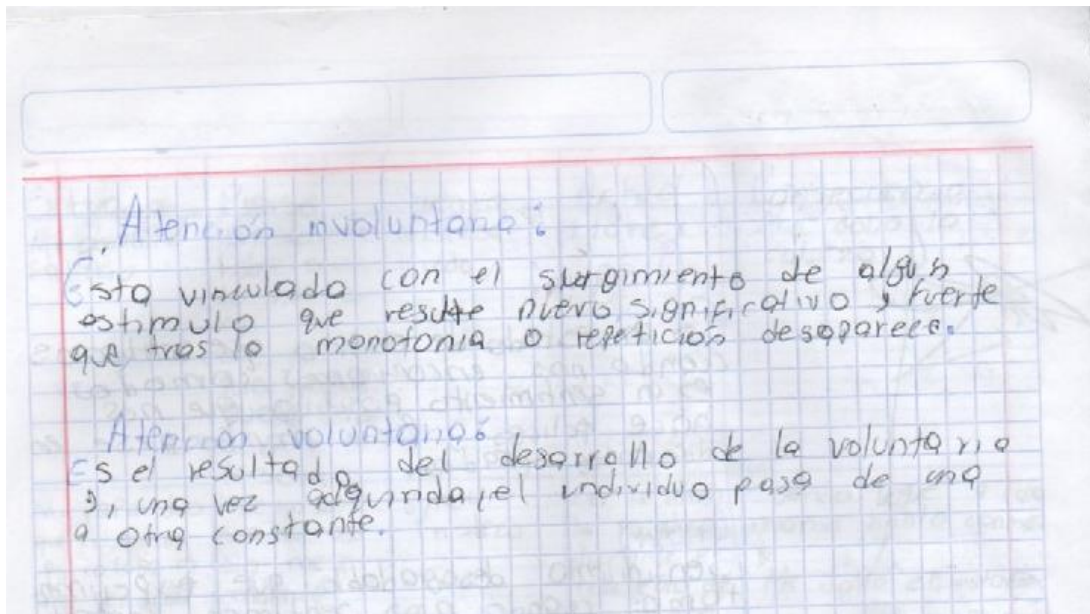 Atención involuntaria:
Esta vinculada con el surgimiento de algun
estimulo que resulte nuevo significativo y fuerte
que tras la monotonia o repetición desaparece.
Atención voluntaria:
Es el resultado del desarrollo de la voluntaria
y, una vez adquirida, el individuo pasa de una
a otra constante.